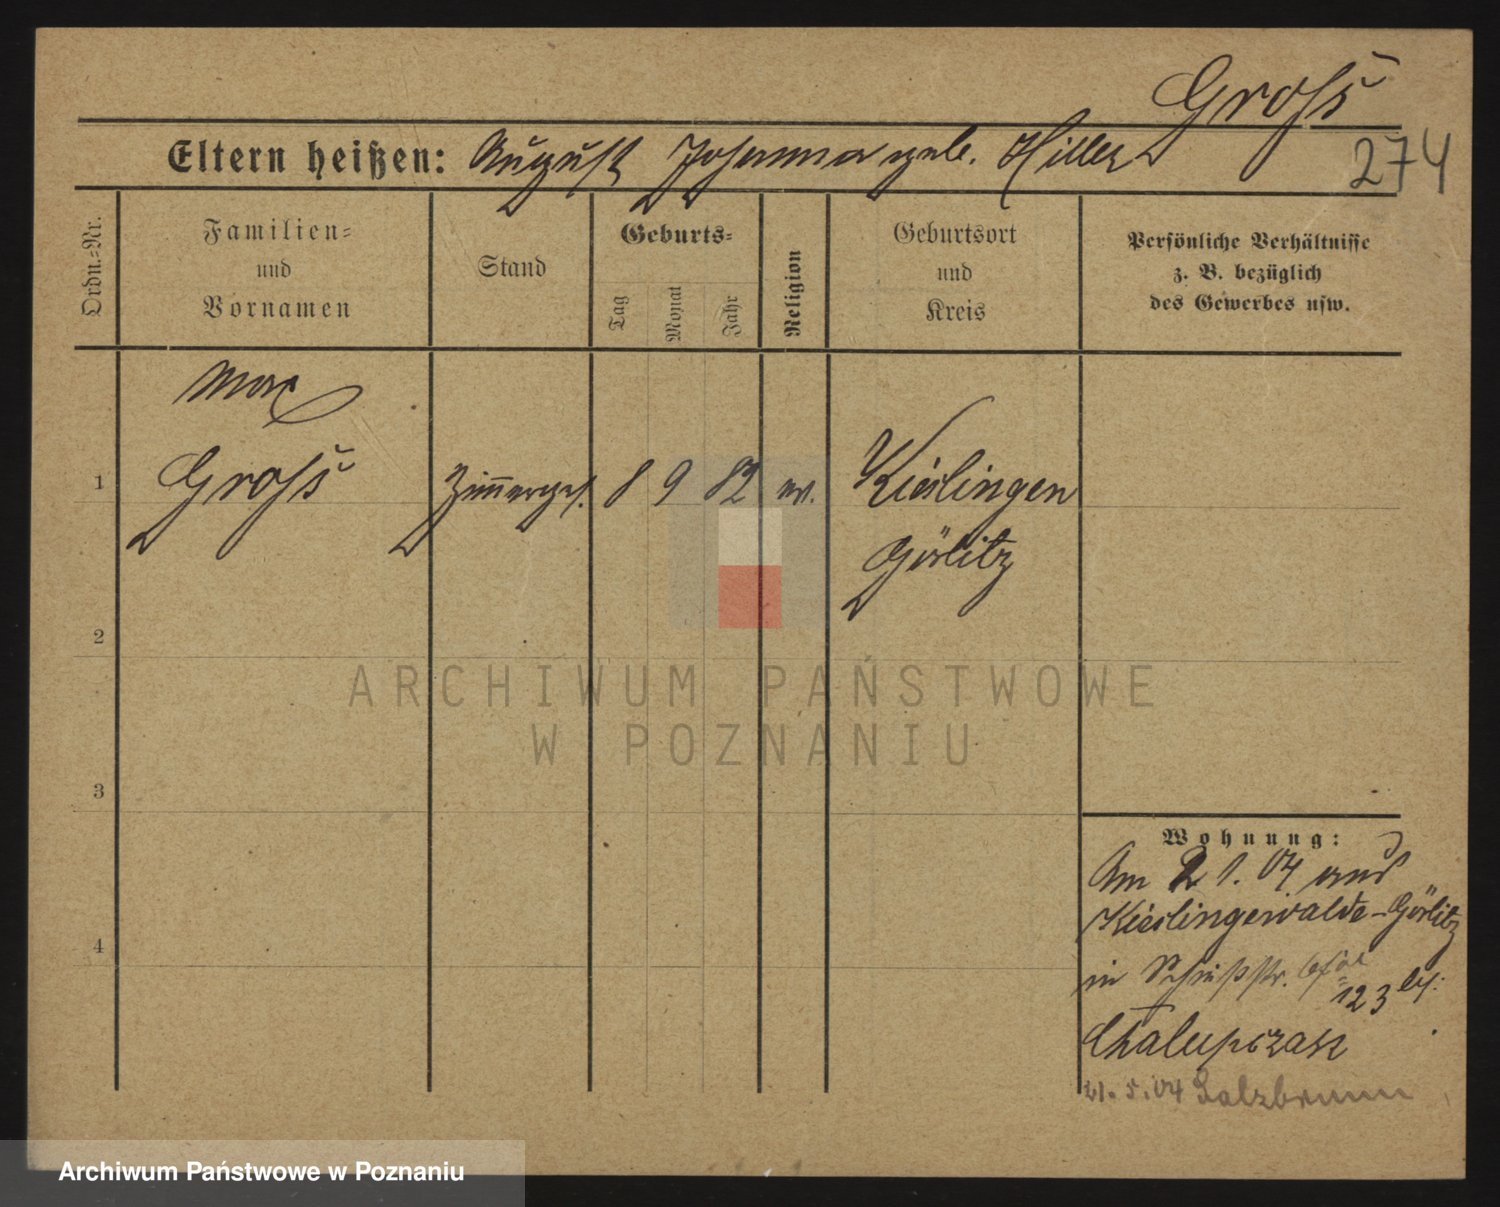 Groß
Eltern heißen: August Johanna geb. Hiller
274
Ordn.-Nr.
Familien-
und
Vornamen
Stand
Geburts-
Tag
Monat
Jahr
Religion
Geburtsort
und
Kreis
Persönliche Verhältnisse
z. B. bezüglich
des Gewerbes usw.
Max
1 Groß Zimmerges. 8 9 82 ev. Kieslingen
Görlitz
2
3
4
ARCHIWUM PAŃSTWOWE
W POZNANIU
Wohnung:
Am 2 1. 04 aus
Kieslingswalde-Görlitz
in
123 bei
Chalupczak
21. 5. 04 Salzbrunn
Archiwum Państwowe w Poznaniu